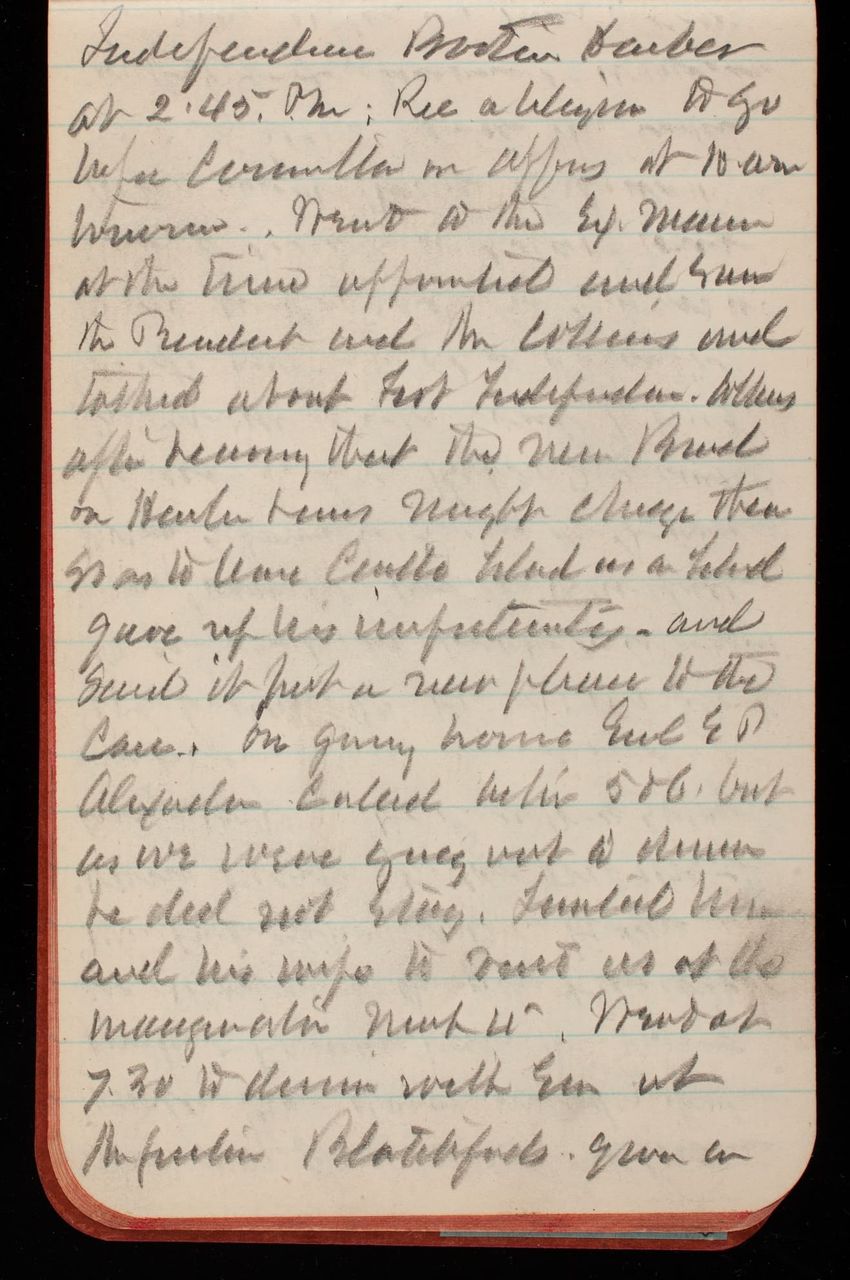 Independence Boston Harbor
at 2.45. Pm; Rec a telegram to go
before Committee on affairs at 10 am
tomorrow. Went to the Ex. Mansion
at the time appointed and saw
the President and the Collins and
talked about Fort Independence. Collins
after hearing that the new Board
on Harbor lines might change them
so as to leave Castle Island as an Island
gave up his importunity. and
said it put a new phase to the
Case. On going home Genl E P
Alexander called betw 5 & 6. but
as we were going out to dinner
he did not stay. Invited him
and his wife to visit us at the
inauguration next yr. Went at
7.30 to dinner with Gen at
the Justice Blatchfords. given in